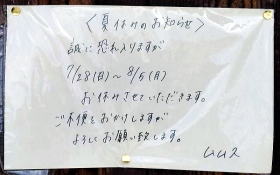 〈夏休みのお知らせ〉
誠に恐れ入りますが
7/28(日)～8/5(月)
お休みさせていただきます。
ご不便をおかけしますが
よろしくお願い致します。
ムムス